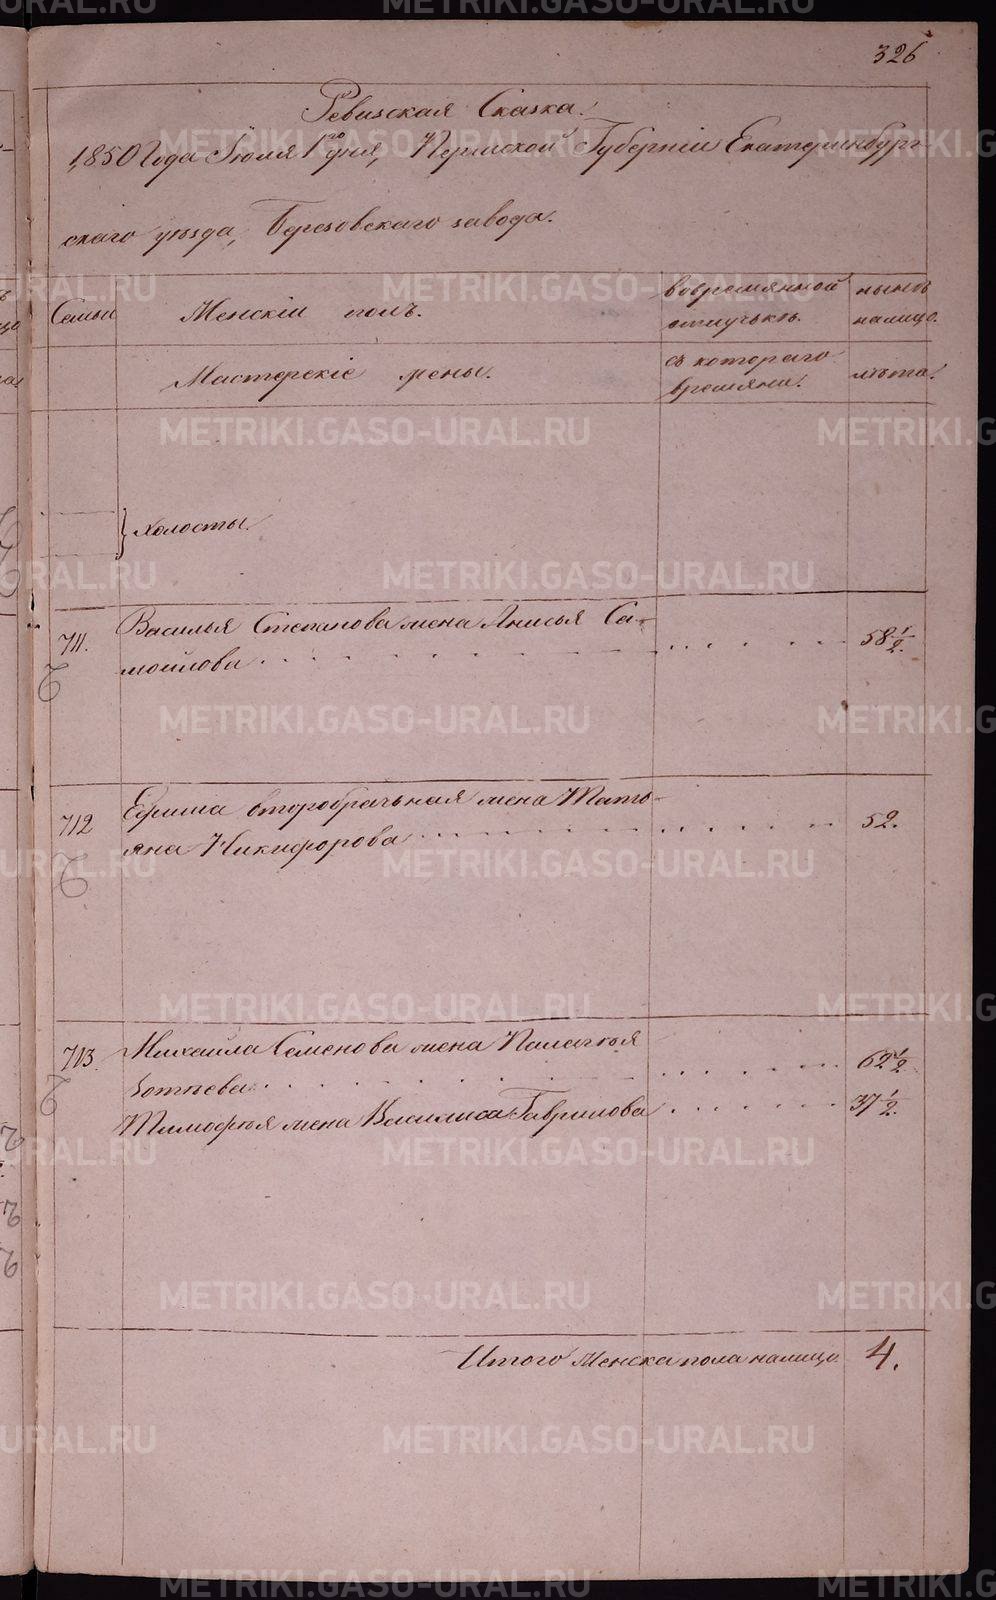 326
Ревизская Сказка.
1850 Года Іюля 1го дня, Пермской Губерніи Екатеринбург-
скаго уѣзда, Березовскаго завода.
Семьи Женскій полъ. вовремянной отлучькѣ. нынѣ налицо.
Мастерскіе жены. съ котораго времяни. лѣта.
} холосты.
711. Василья Степанова жена Анисья Са-
мойлова . . . . . . . . . . 58 1/2.
712 Ефима второбрачьная жена Татъ-
яна Никифорова . . . . . . . . . . 52.
713. Михайла Семенова жена Палагья
Зотѣева . . . . . . . . . . 62 1/2.
Тимофѣя жена Василиса Гаврилова . . . . . . 37 1/2.
Итого Женска пола налицо. 4.
METRIKI.GASO-URAL.RU